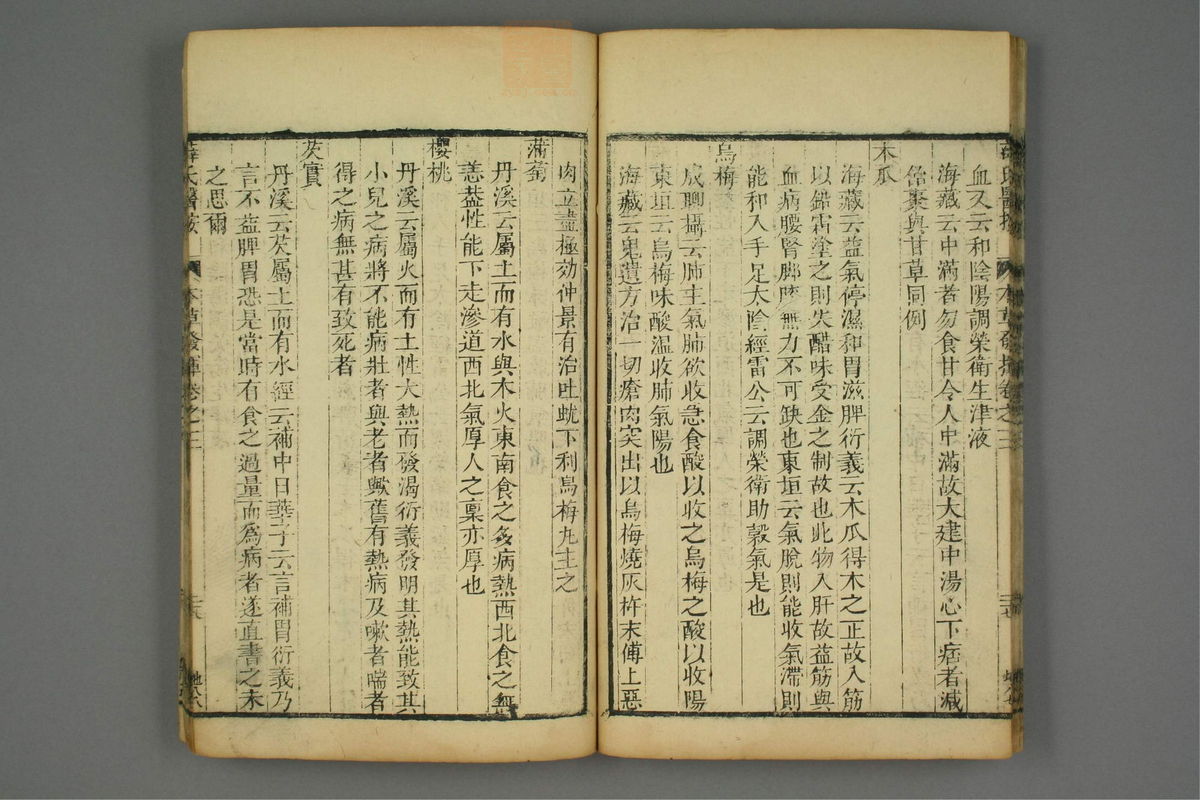 血又云和陰陽調榮衛生津液
海藏云中滿者勿食甘令人中滿故大建中湯心下痞者減
飴棗與甘草同例
木瓜
海藏云益氣停濕和胃滋脾衍義云木瓜得木之正故入筋
以鉛霜塗之則失酷味受金之制故也此物入肝故益筋與
血病腰腎脚膝無力不可缺也東垣云氣脫則能收氣滯則
能和入手足太陰經雷公云調榮衛助穀氣是也
烏梅
成聊攝云肺主氣肺欲收急食酸以收之烏梅之酸以收陽
東垣云烏梅味酸溫收肺氣陽也
海藏云鬼遺方治一切瘡肉突出以烏梅燒灰杵末傅上惡
肉立盡極効仲景有治吐蚘下利烏梅丸主之
蒲萄
丹溪云屬土而有水與木火東南食之多病熱西北食之無
恙蓋性能下走滲道西北氣厚人之稟亦厚也
櫻桃
丹溪云屬火而有土性大熱而發渴衍義發明其熱能致其
小兒之病將不能病壯者與老者歟舊有熱病及嗽者喘者
得之病無甚有致死者
芡實
丹溪云芡屬土而有水經云補中日華子云言補胃衍義乃
言不益脾胃恐是當時有食之過量而爲病者遂直書之未
之思爾
薛氏醫按
本草發揮卷之三